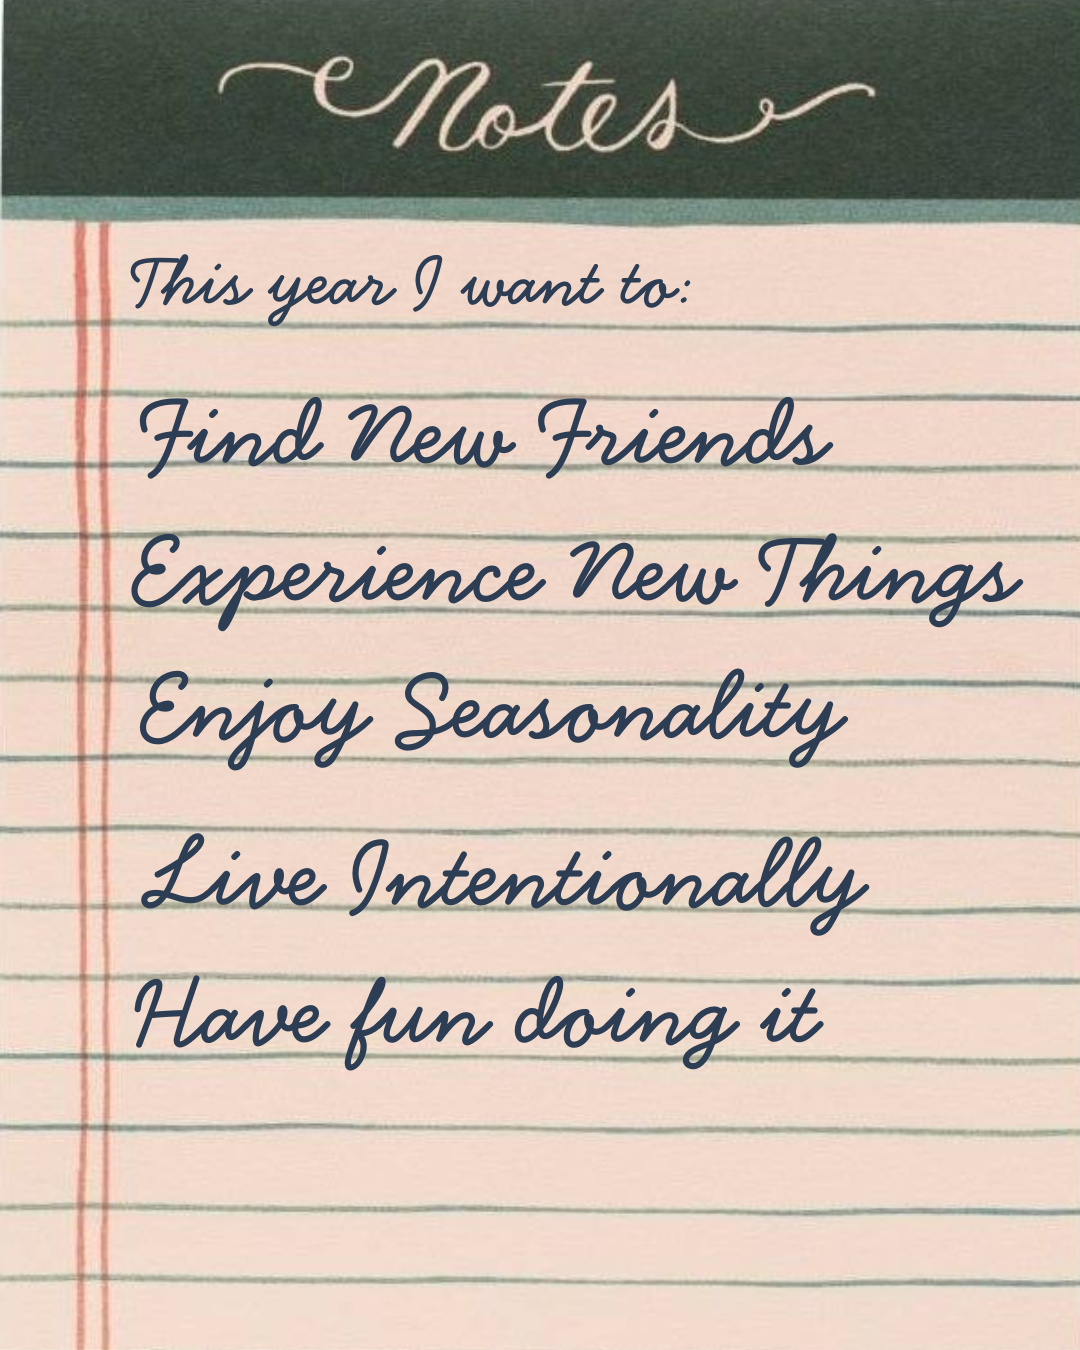 Notes
This year I want to:
Find New Friends
Experience New Things
Enjoy Seasonality
Live Intentionally
Have fun doing it